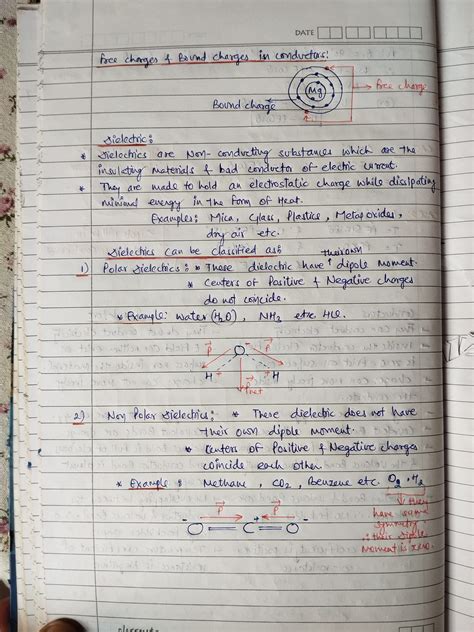 DATE
Free charges & Bound charges in conductors:
Mg
Free charge
Bound charge
Dielectric:
* Dielectrics are Non-conducting substances which are the
insulating materials & bad conductor of electric current.
* They are made to hold an electrostatic charge while dissipating
minimal energy in the form of Heat.
Examples: Mica, Glass, Plastics, Metal oxides,
dry air etc.
Dielectrics can be classified as:
1) Polar Dielectrics: * These dielectric have their own dipole moment.
* Centers of Positive & Negative charges
do not coincide.
* Example: water (H2O), NH3 etc. HCl.
P O P
H H
Pnet
2) Non Polar Dielectrics: * These dielectric does not have
their own dipole moment.
* Centers of Positive & Negative charges
coincide each other.
* Example: Methane, CO2, Benzene etc. O2, H2
they
have same
symmetry
∴ their dipole
Moment is zero.
P P
- + -
O = C = O